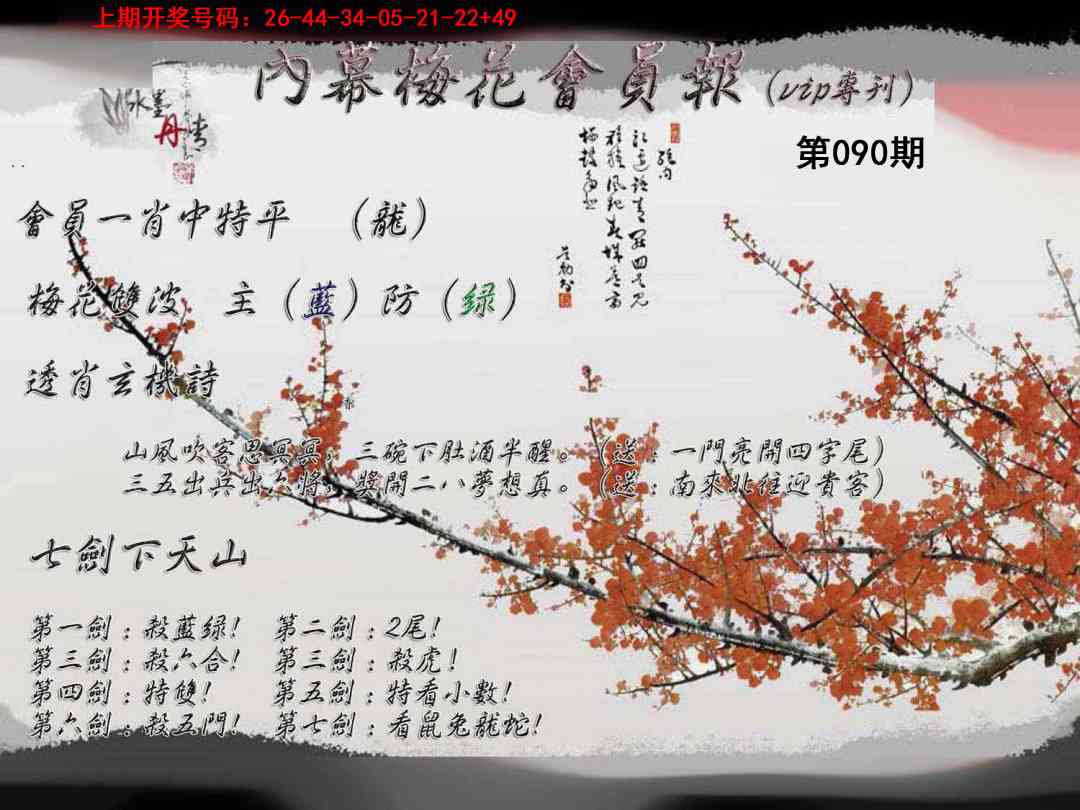 上期开奖号码：26-44-34-05-21-22+49
內幕梅花會員報（vip專刊）
水墨
丹青
第090期
會員一肖中特平 （龍）
梅花雙波 主（藍）防（绿）
透肖玄機詩
山風吹客思冥冥，三碗下肚酒半醒。（送：一門亮開四字尾）
三五出兵出六將，獎開二八夢想真。（送：南來北往迎貴客）
七劍下天山
第一劍：殺藍绿! 第二劍：2尾!
第三劍：殺六合! 第三劍：殺虎!
第四劍：特雙! 第五劍：特看小數!
第六劍：殺五門! 第七劍：看鼠兔龍蛇!